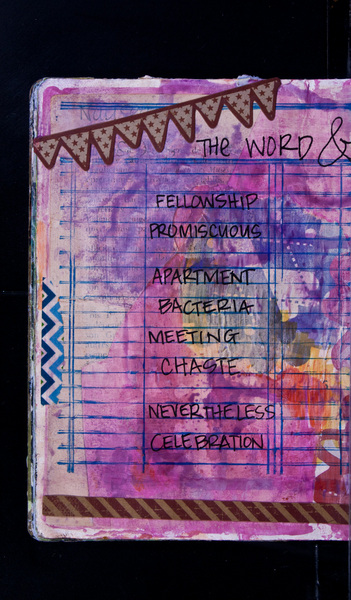 THE WORD &
FELLOWSHIP
PROMISCUOUS
APARTMENT
BACTERIA
MEETING
CHASTE
NEVERTHELESS
CELEBRATION